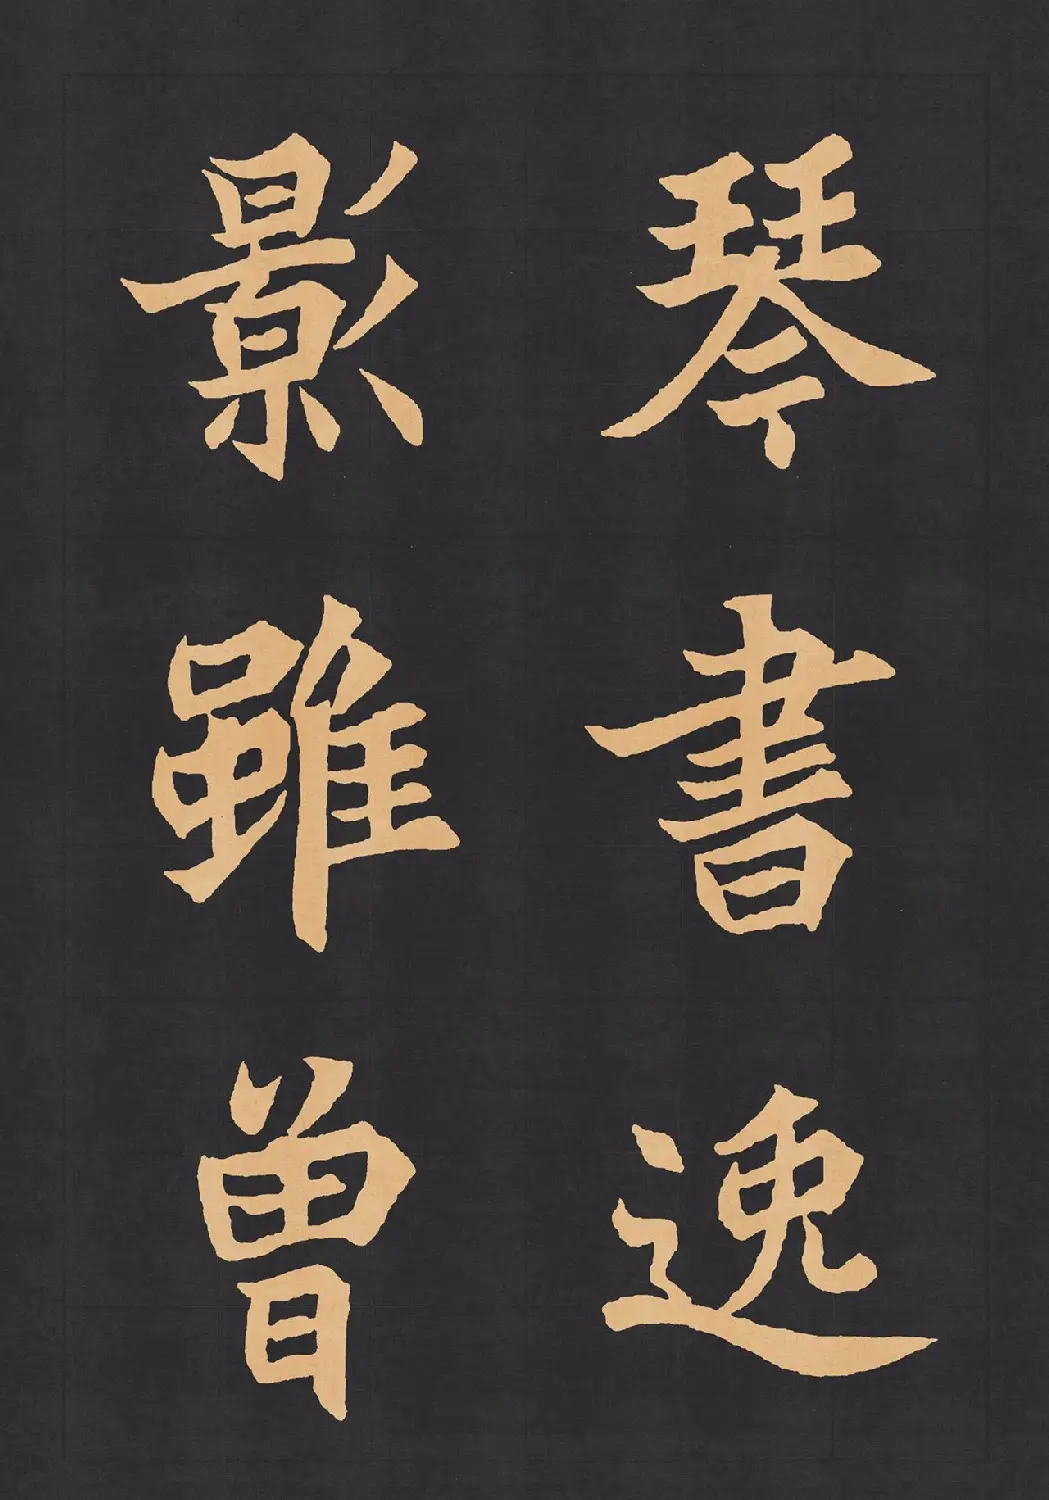 琴書逸
影雖曾